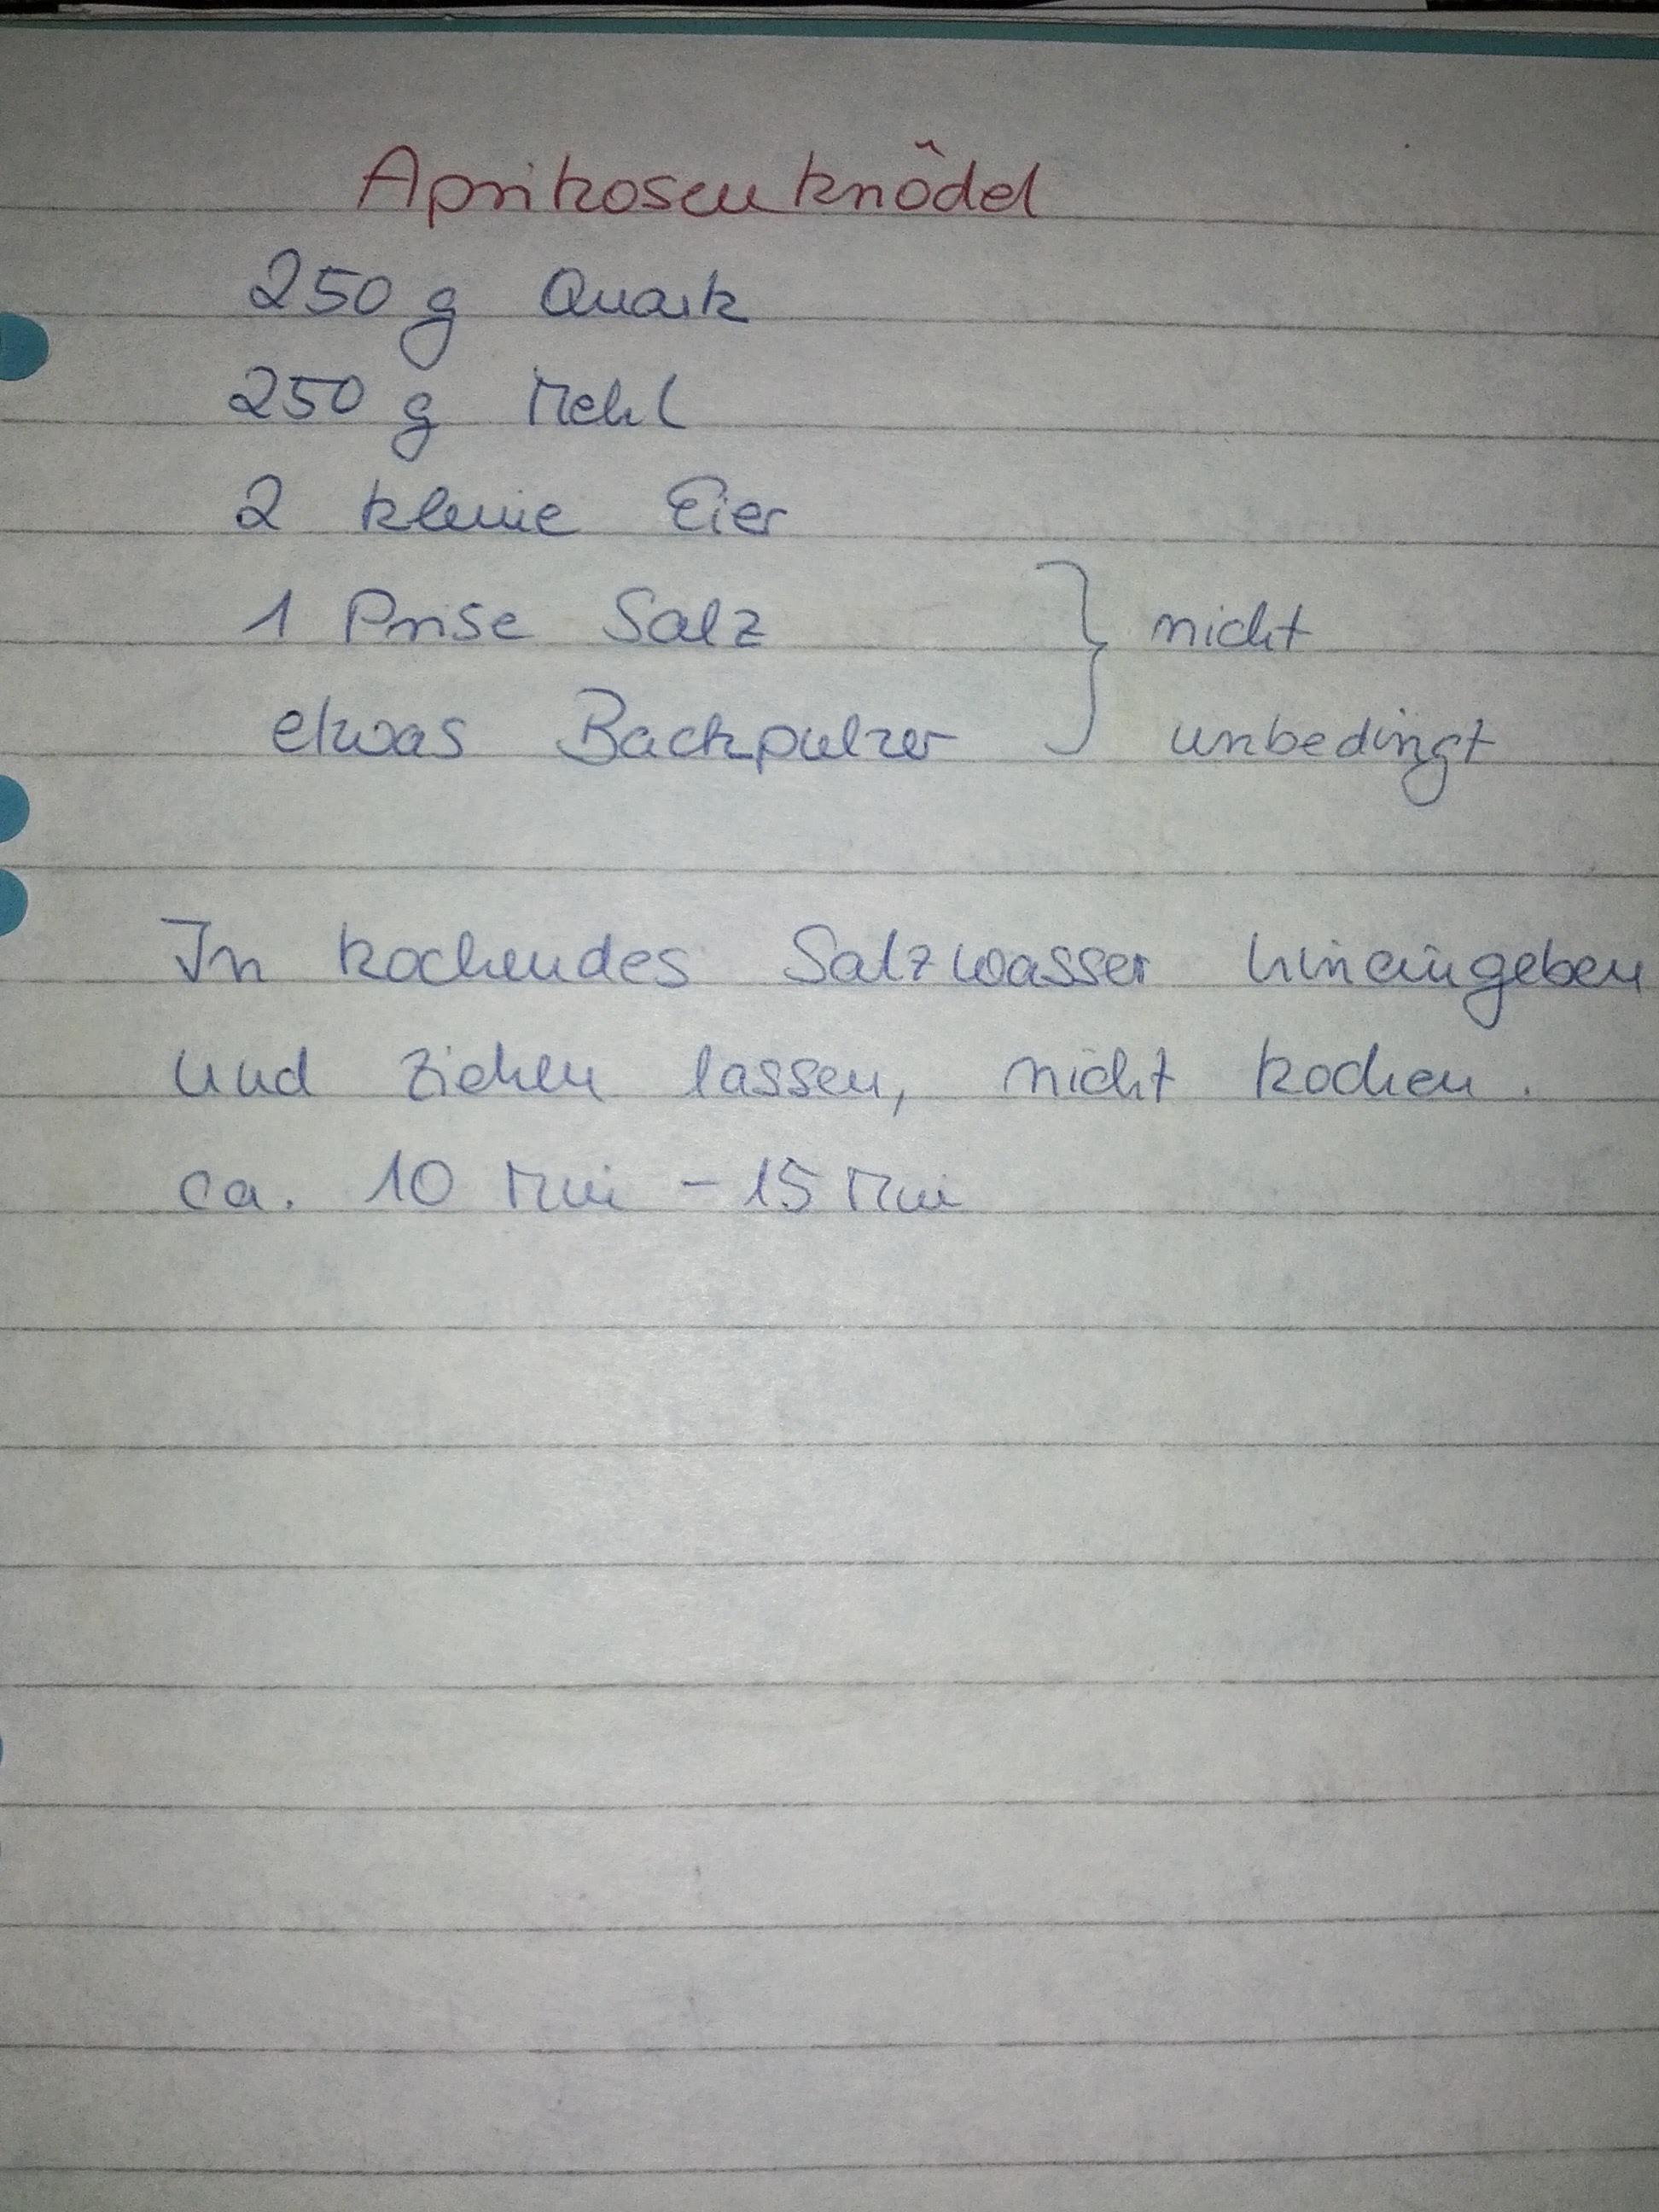 Aprikosenknödel
250 g Quark
250 g Mehl
2 kleine Eier
1 Prise Salz } nicht
etwas Backpulver } unbedingt
In kochendes Salzwasser hineingeben
und ziehen lassen, nicht kochen.
ca. 10 Min - 15 Min